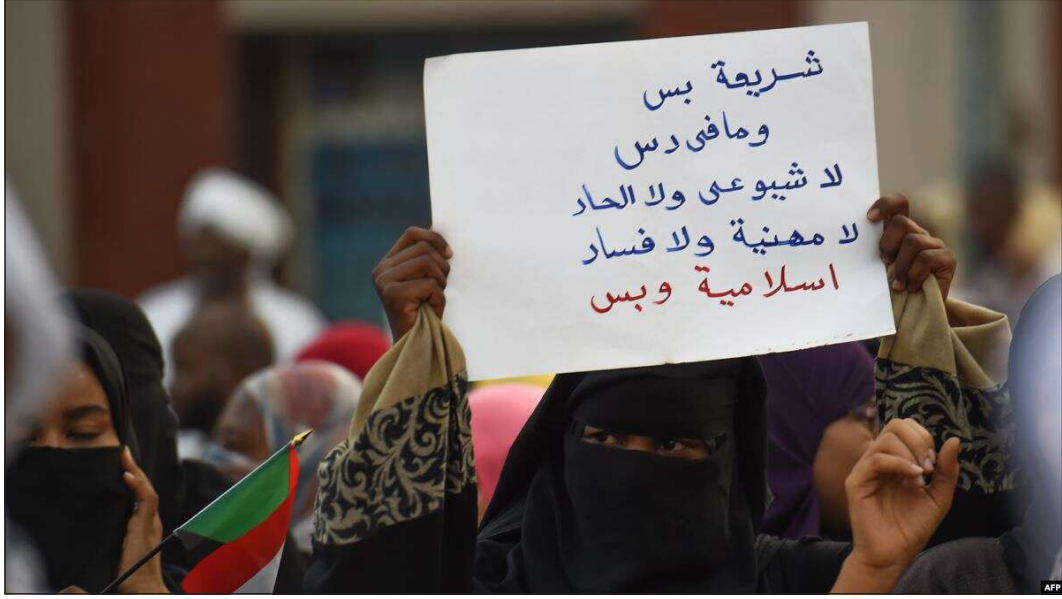 شريعة بس
ومافى دس
لا شيوعى ولا الحاد
لا مهنية ولا فسار
اسلامية وبس
AFP